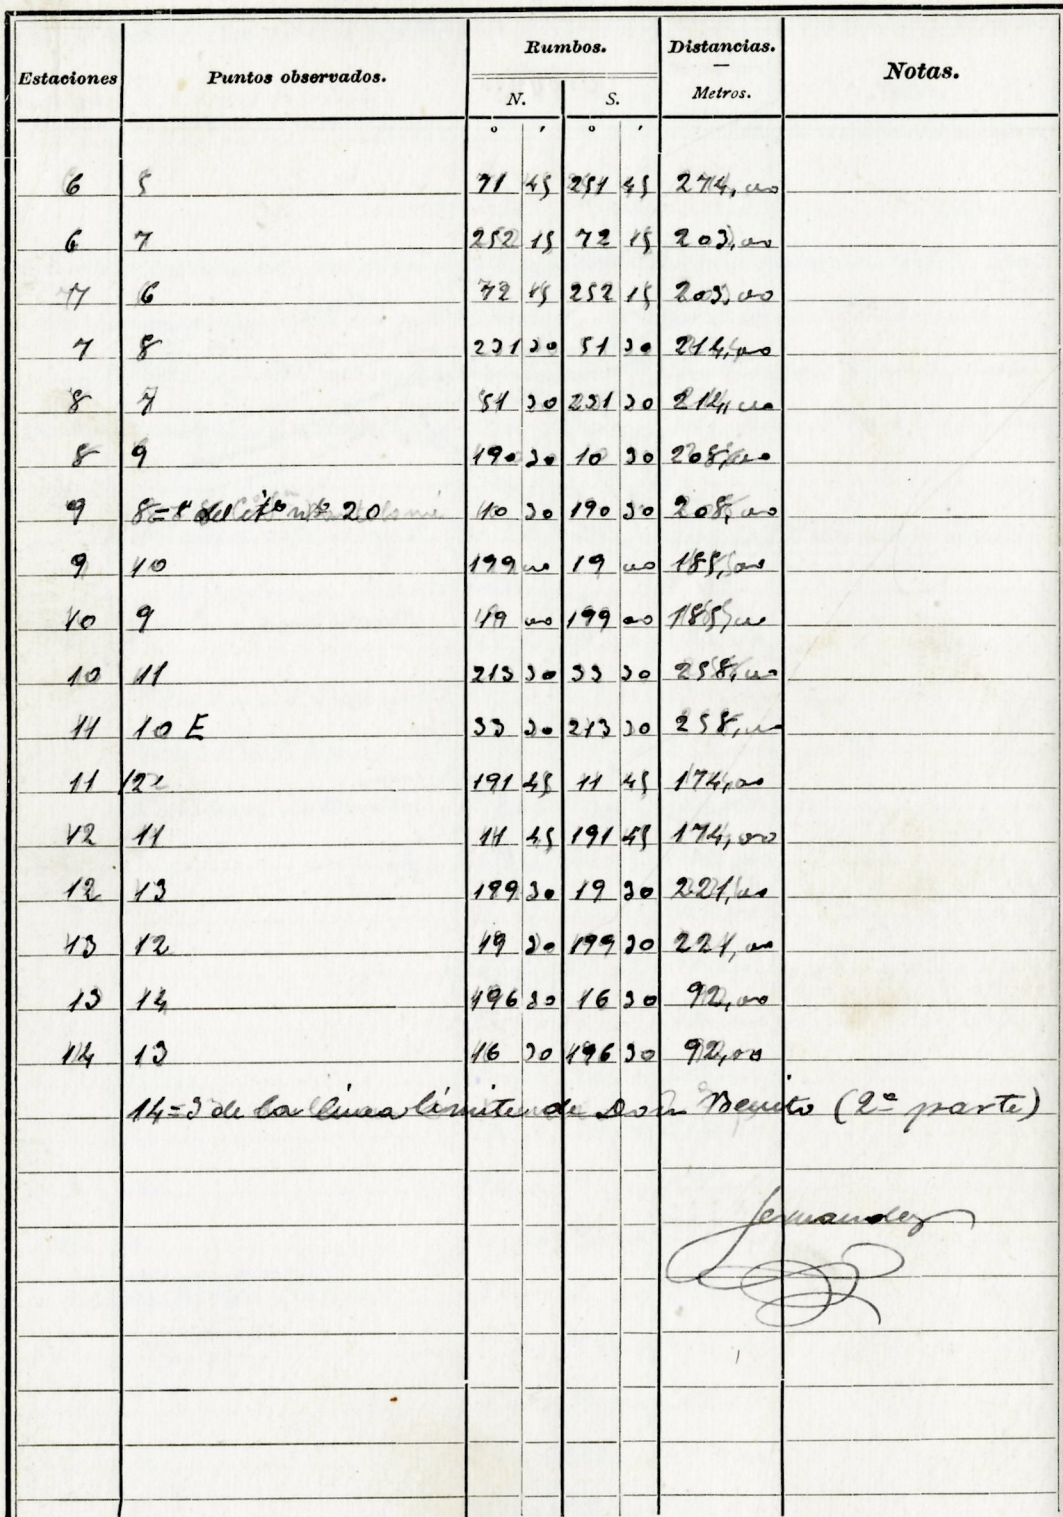 Estaciones Puntos observados. Rumbos. Distancias. Notas.
N. S. Metros.
° ′ ° ′
6 5 71 45 251 45 274,00
6 7 252 15 72 15 203,00
7 6 72 15 252 15 203,00
7 8 231 30 51 30 214,00
8 7 51 30 231 30 214,00
8 9 190 30 10 30 208,00
9 8=8 del itº nº 20 10 30 190 30 208,00
9 10 199 00 19 00 185,00
10 9 19 00 199 00 185,00
10 11 213 30 33 30 258,00
11 10 E 33 30 213 30 258,00
11 12 191 45 11 45 174,00
12 11 11 45 191 45 174,00
12 13 199 30 19 30 221,00
13 12 19 30 199 30 221,00
13 14 196 30 16 30 92,00
14 13 16 30 196 30 92,00
14=3 de la línea límite de Don Benito (2ª parte)
Fernandez